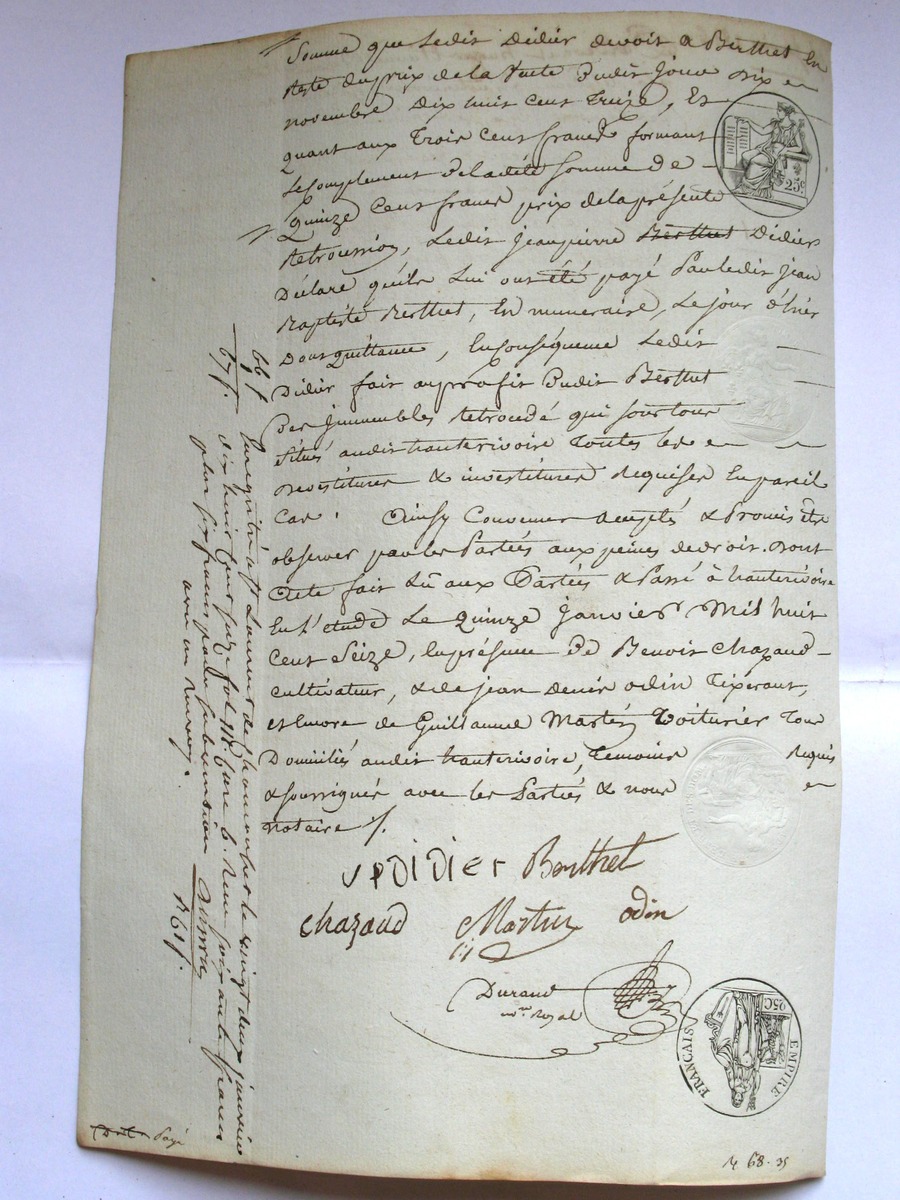 Somme que Ledit Didier devoit a Berthet En
reste du prix de la Vente Dudit Jour dix
novembre Dix huit cent Treize, Et
quant aux Trois Cent francs formant
Le complement De ladite Somme De
Quinze Cent francs prix de la présente
retroussion, Ledit Jean pierre Berthet Didier
Déclare qu'ils Lui ont été payé Par ledit Jean
Baptiste Berthet, En numeraire, Le jour d'hier
Dont quittance, En Conséquence Ledit
Didier fait au profit Dudit Berthet
Des Immeubles retrocédé qui sont tous
Situés audit hauterivoire Toutes les
Devestitures & investitures Requises En pareil
Cas. Ainsy Convenu accepté & Promis être
observer par les Parties aux peines de droit. Dont
Acte fait Lu aux Parties & Passé à hauterivoire
En L'étude Le Quinze Janvier Mil huit
Cent Seize, En présence De Benoit Chazaud
cultivateur, & de jean denis odin Tixerant,
et Encore de Guillaume Martin Voiturier Tous
Domiciliés audit hauterivoire, Temoins requis
& soussignés avec les Parties & nous
notaire
JP DIDIER Berthet
Chazaud Martin odin
Durand
nre Royal
25c
EMPIRE FRANCAIS
25C
66 f
67 f.
Enregistré à St Laurent de Chamousset le vingt deux janvier
dix huit cent seize fol. 118 Case 6 Reçu soixante francs
plus six francs pour subvention
19 f.
Payé
68